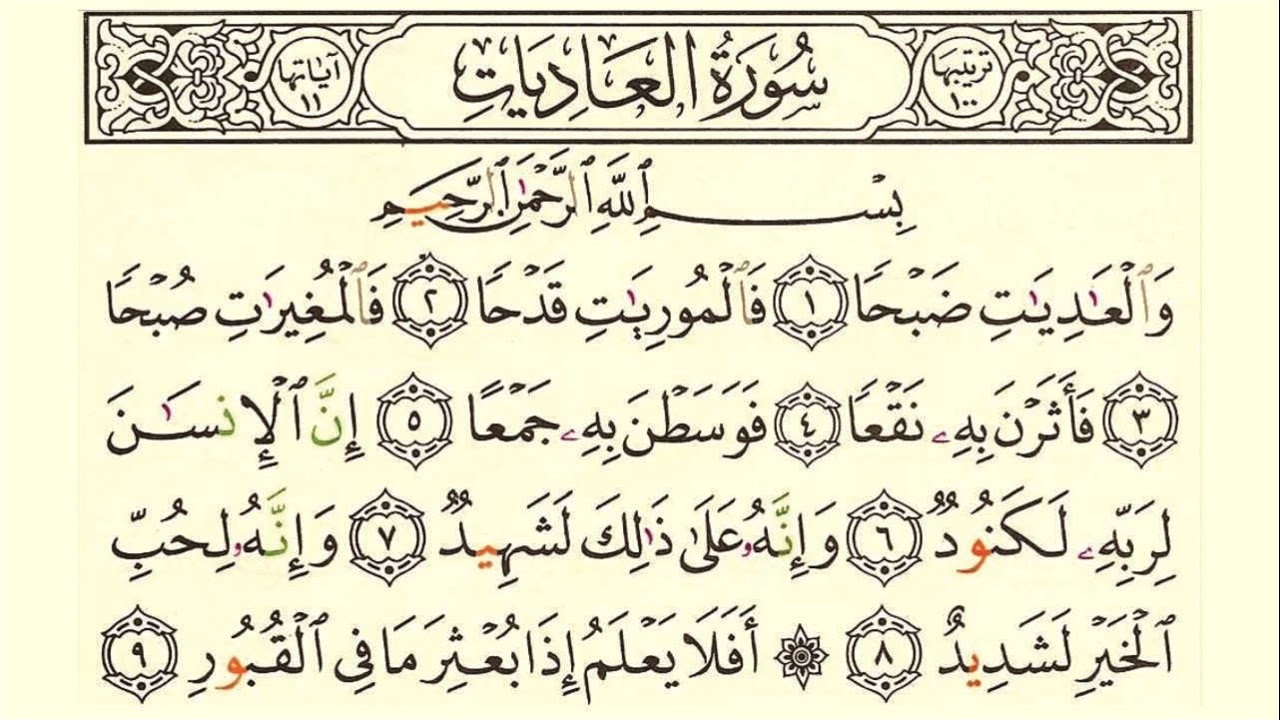 ترتيبها ١٠٠ سُورَةُ الْعَادِيَاتِ آيَاتها ١١
بِسْمِ ٱللَّهِ ٱلرَّحْمَٰنِ ٱلرَّحِيمِ
وَٱلْعَٰدِيَٰتِ ضَبْحًا ١ فَٱلْمُورِيَٰتِ قَدْحًا ٢ فَٱلْمُغِيرَٰتِ صُبْحًا
٣ فَأَثَرْنَ بِهِۦ نَقْعًا ٤ فَوَسَطْنَ بِهِۦ جَمْعًا ٥ إِنَّ ٱلْإِنسَٰنَ
لِرَبِّهِۦ لَكَنُودٌ ٦ وَإِنَّهُۥ عَلَىٰ ذَٰلِكَ لَشَهِيدٌ ٧ وَإِنَّهُۥ لِحُبِّ
ٱلْخَيْرِ لَشَدِيدٌ ٨ ۞ أَفَلَا يَعْلَمُ إِذَا بُعْثِرَ مَا فِى ٱلْقُبُورِ ٩